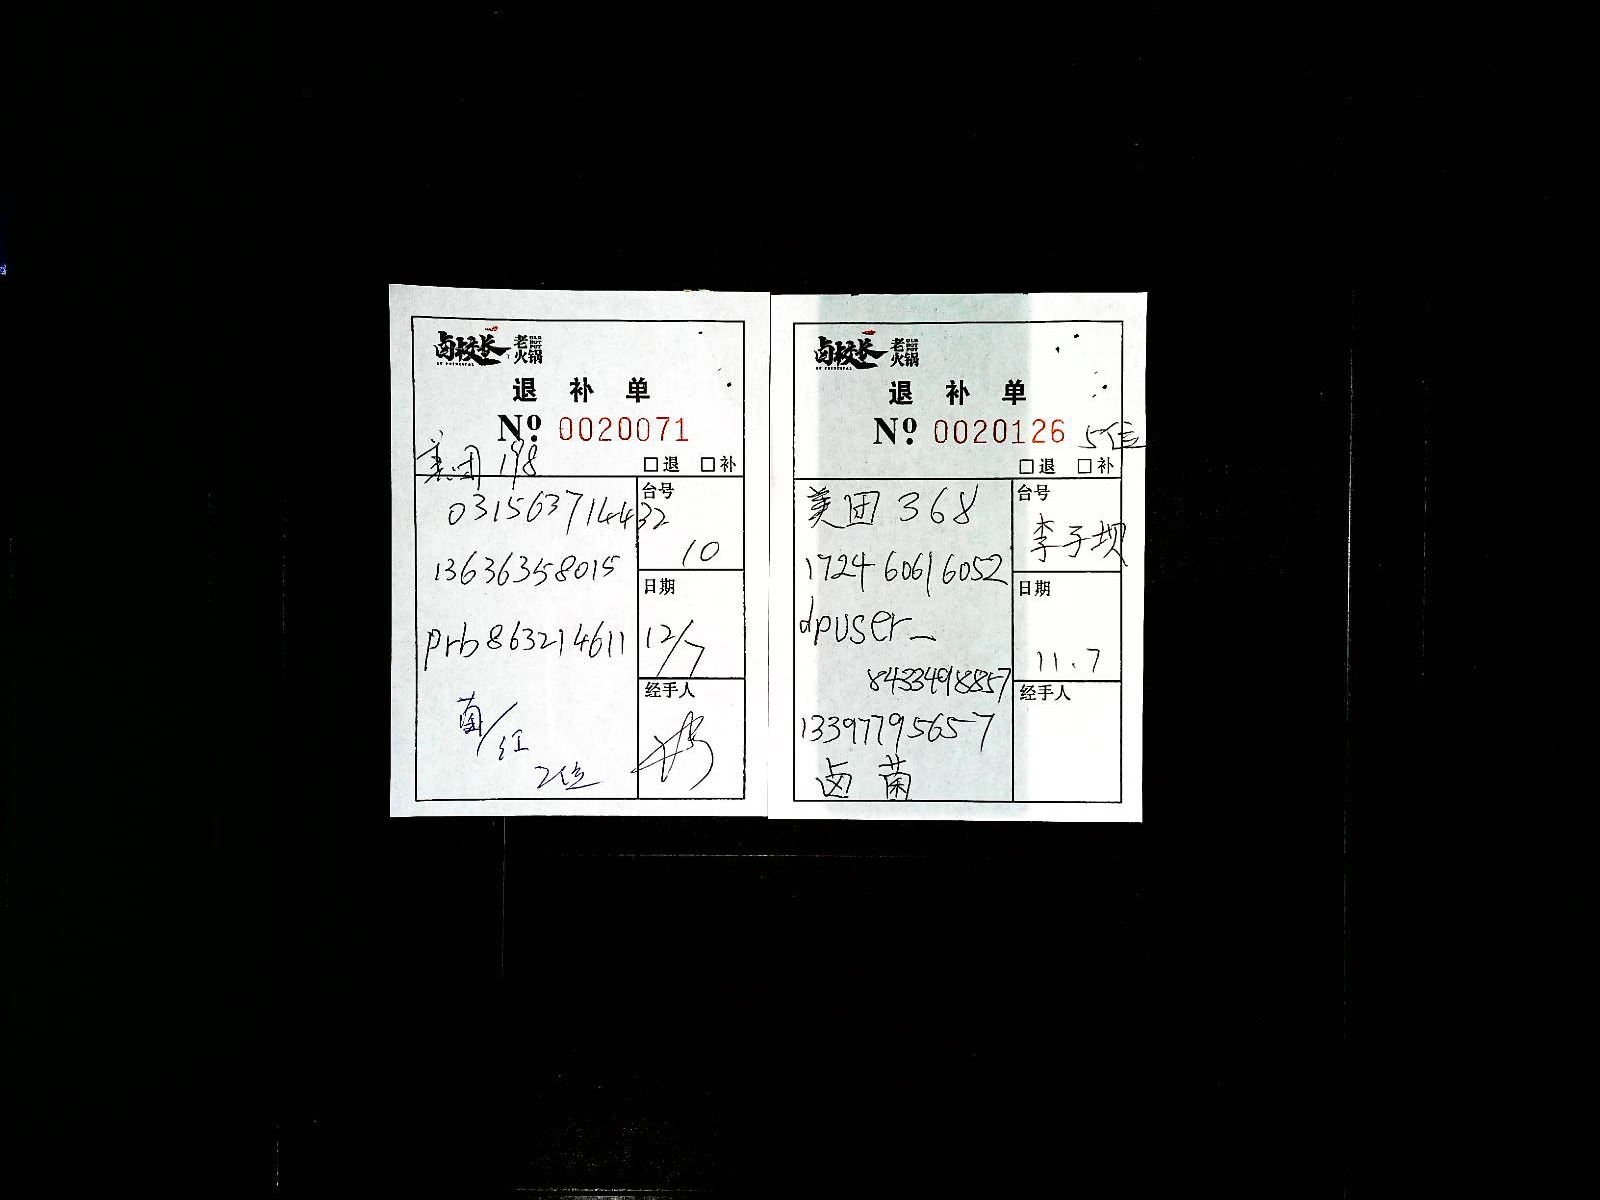 卤校长 老火锅
退 补 单
Nº: 0020071
美团 198
□退 □补
031563714432
13636358015
prb863214611
菌/红
2位
台号
10
日期
12/7
经手人
卤校长 老火锅
退 补 单
Nº: 0020126 5位
□退 □补
美团 368
172460616052
dpuser_
8433498857
13397795657
卤 菌
台号
李子坝
日期
11.7
经手人